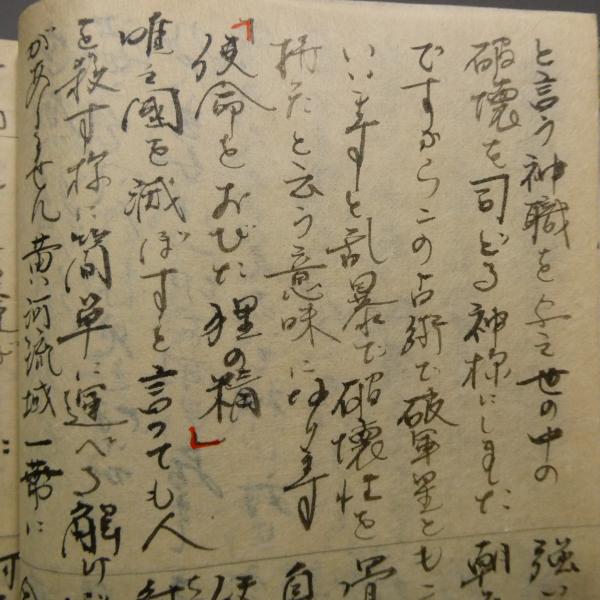 と言う神職を与え世の中の
破壊を司どる神様にしました
ですからこの占術で破軍星とも
いいますと乱暴で破壊性を
持たと云う意味になります
「使命をおびた狸の精」
唯に国を滅ぼすと言っても人
を殺す様に簡単に運べる解け
がありません黄い河流域一帯に
強い
朝
骨
自